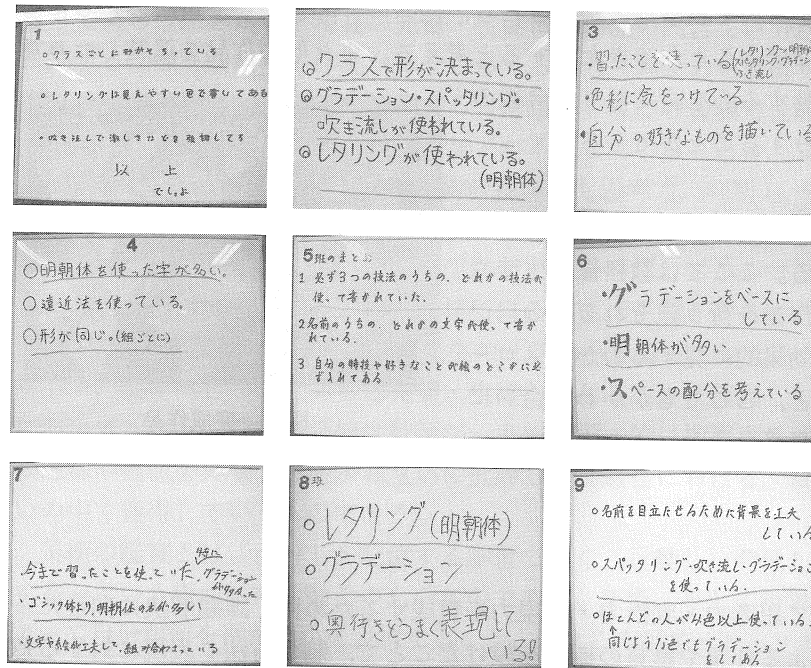 1
○クラスごとに形がそろっている
○レタリングは見えやすい色で書いてある
○吹き流しで激しさなどを強調してる
以上
でしょ
◎クラスで形が決まっている。
◎グラデーション・スパッタリング・
吹き流しが使われている。
◎レタリングが使われている。
(明朝体)
3
・習ったことを使っている
(レタリング→明朝
スパタリング・グラデーション
ふき流し
・色彩に気をつけている
・自分の好きなものを描いている
4
○明朝体を使った字が多い。
○遠近法を使っている。
○形が同じ。(組ごとに)
5班のまとめ
1 必ず3つの技法のうちの、どれかの技法が
使って書かれていた。
2 名前のうちの、どれかの文字が使って書か
れている。
3 自分の特技や好きなことが絵のどこかに必
ずよれてある
6
・グラデーションをベースに
している
・明朝体が多い
・スペースの配分を考えている
7
・今まで習ったことを使っていた。
特に
グラデーション
が多かった
・ゴシック体より、明朝体の方が多い
・文字や絵が工夫して、組み合わさっている
8班
○レタリング(明朝体)
○グラデーション
○奥行きをうまく表現して
いる!!
9
○名前を目立たせるために背景を工夫
している
○スパッタリング・吹き流し・グラデーション
を使っている。
○ほとんどの人が4色以上使っている。
↑
同じような色でもグラデーション
をしてある